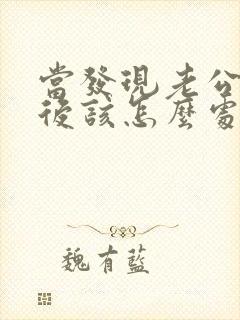 當發現老公
後該怎麼處
魏有藍